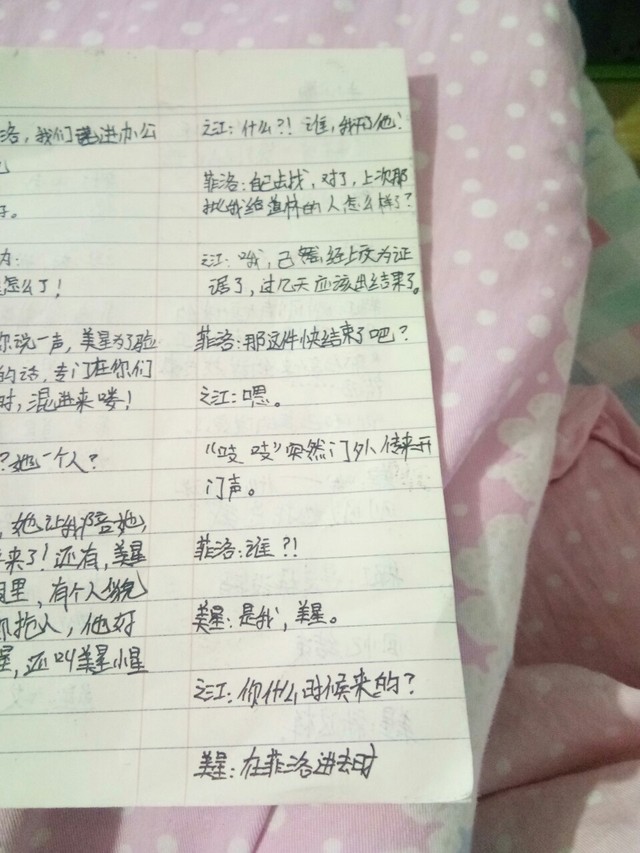 洛，我们进办公
怎么了！
你说一声，美星为了验
的话，专门在你们
时，混进来喽！
？她一个人？
，她让我陪她，
来了！还有，美星
里，有个人貌
你抢人，他好
星，还叫美星小星
之江：什么？！谁，我打他！
菲洛：自己去找，对了，上次那
批我给道林的人怎么样了？
之江：哦，已经上交为证
据了，过几天应该出结果了。
菲洛：那这件快结束了吧？
之江：嗯。
“吱吱”突然门外传来开
门声。
菲洛：谁？！
美星：是我，美星。
之江：你什么时候来的？
美星：在菲洛进去时